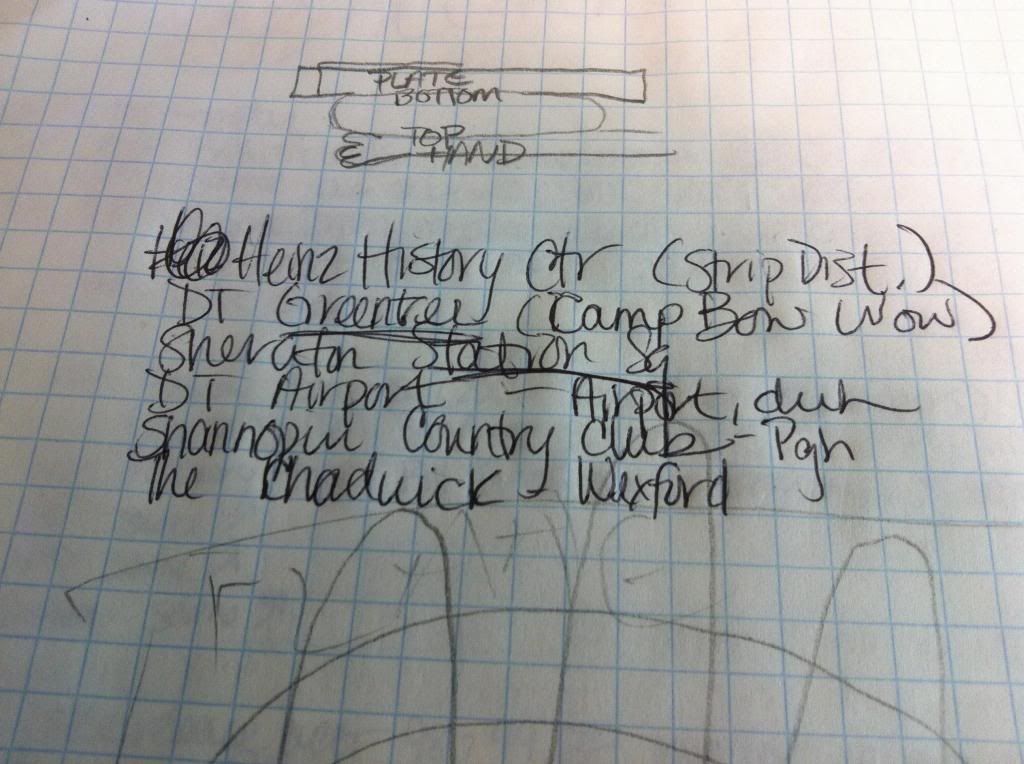 PLATE
BOTTOM
TOP
HAND
Heinz History Ctr (Strip Dist.)
DT Greentree (Camp Bow Wow)
Sheraton Station Sq
DT Airport - Airport, duh
Shannopin Country Club - Pgh
The Chadwick - Wexford